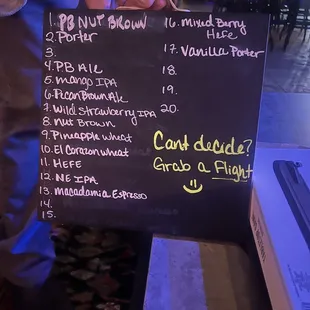 1. PB NUT BROWN
2. Porter
3.
4. PB Ale
5. mango IPA
6. Pecan Brown Ale
7. Wild Strawberry IPA
8. Nut Brown
9. Pineapple wheat
10. El Corazon wheat
11. HEFE
12. NE IPA
13. macadamia Espresso
14.
15.
16. Mixed Berry
Hefe
17. Vanilla Porter
18.
19.
20.
Cant decide?
Grab a Flight